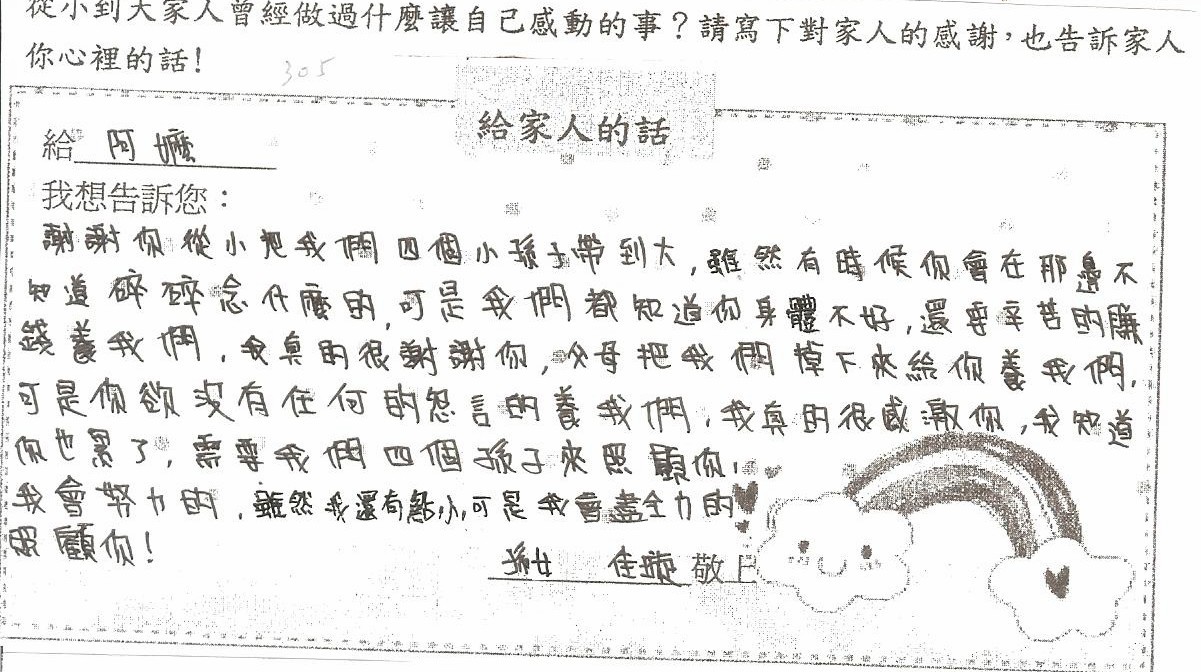 從小到大家人曾經做過什麼讓自己感動的事？請寫下對家人的感謝，也告訴家人
你心裡的話！
305
給家人的話
給 阿嬤
我想告訴您：
謝謝你從小把我們四個小孫子帶到大，雖然有時候你會在那邊不
知道碎碎念什麼的，可是我們都知道你身體不好，還要辛苦的賺
錢養我們，我真的很謝謝你，父母把我們掉下來給你養我們，
可是你欲沒有任何的怨言的養我們，我真的很感激你，我知道
你也累了，需要我們四個孫子來照顧你，
我會努力的，雖然我還有點小，可是我會盡全力的
照顧你！
孫女 佳璇 敬上